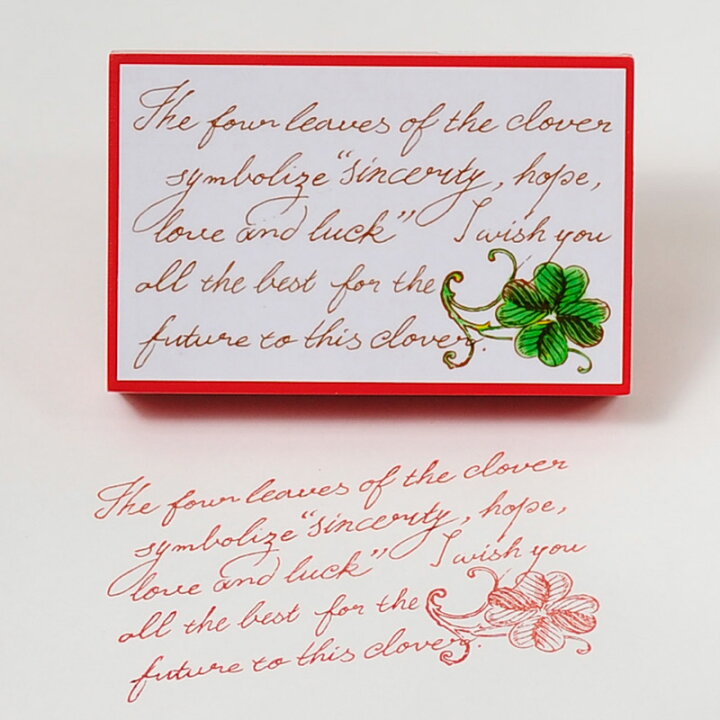 The four leaves of the clover
symbolize "sincerity, hope,
love and luck" I wish you
all the best for the
future to this clover.
The four leaves of the clover
symbolize "sincerity, hope,
love and luck" I wish you
all the best for the
future to this clover.